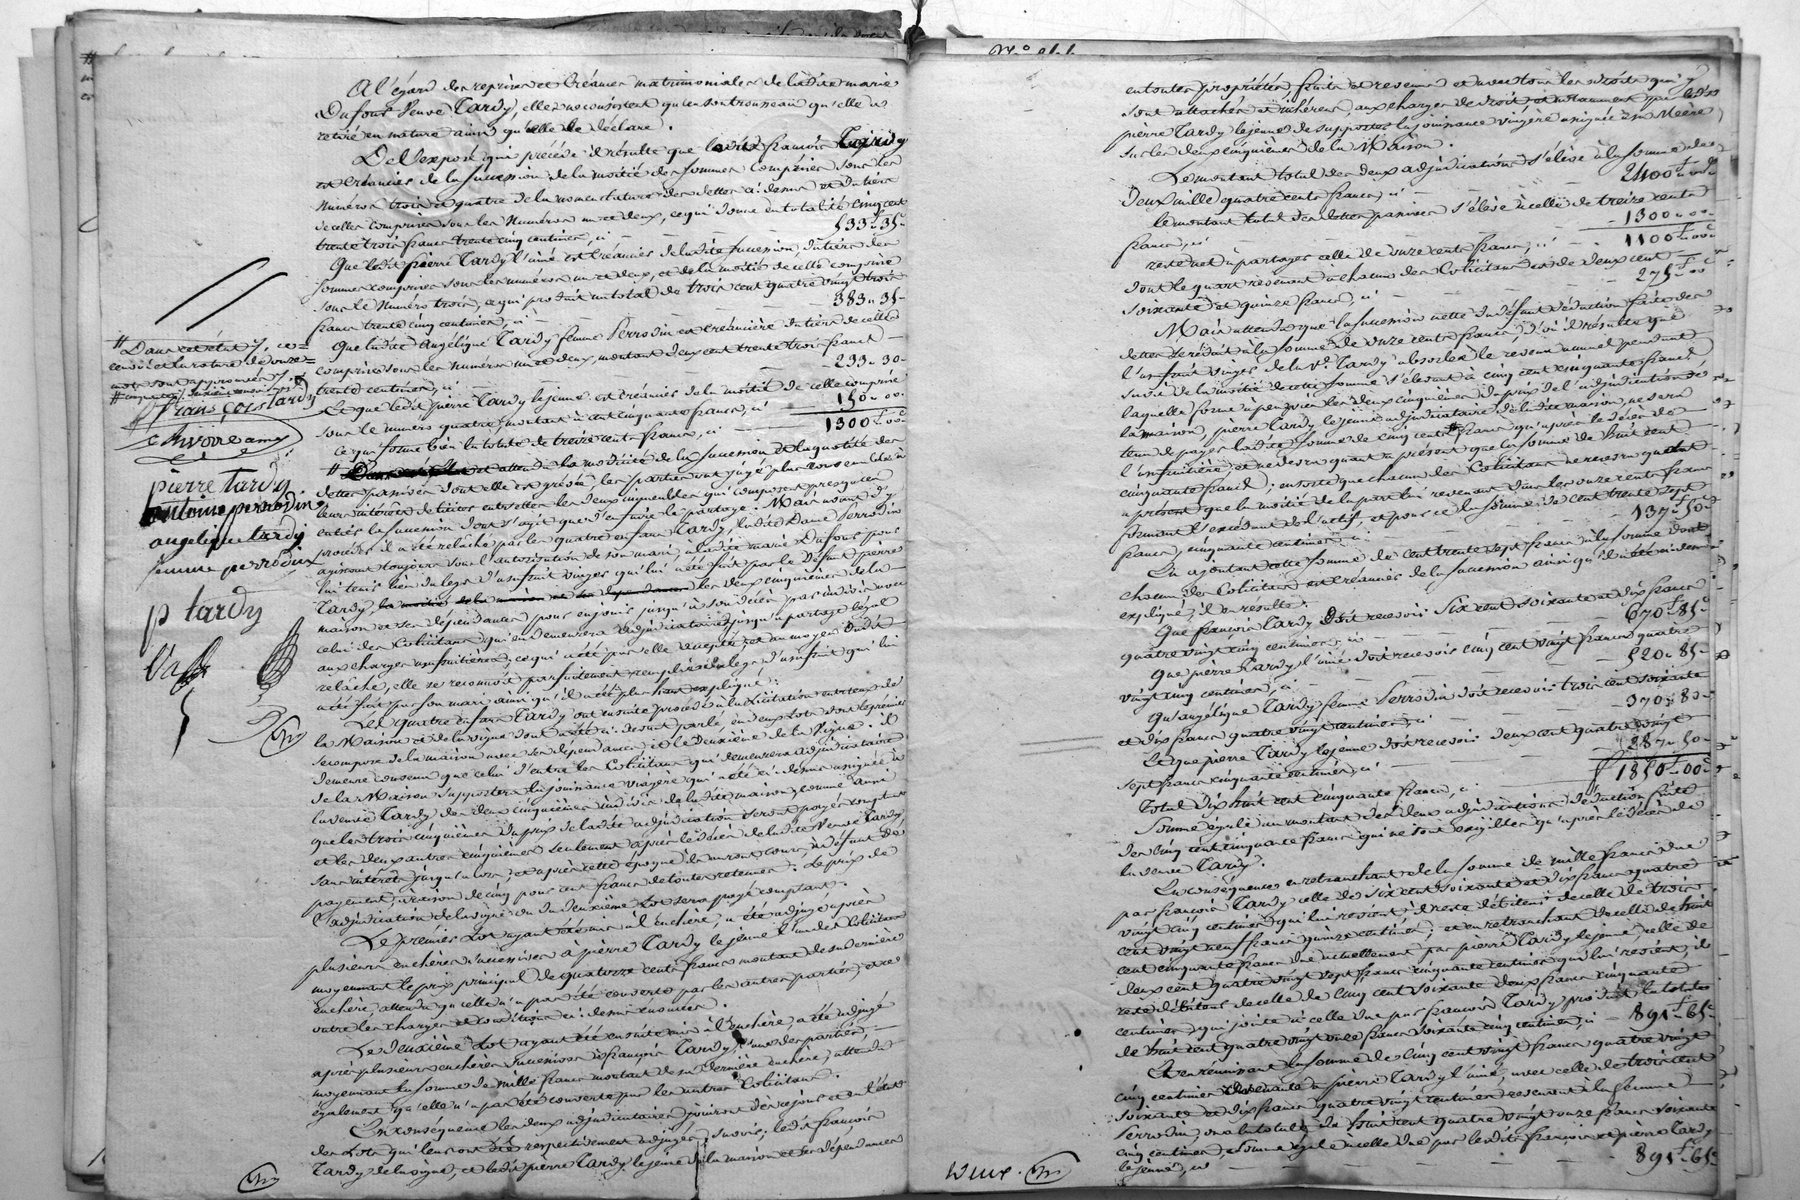 A l'égard des reprises et créances matrimoniales de ladite marie
Dufour veuve Tardy, elles ne consistent qu'en son trousseau qu'elle a
retiré en nature ainsi qu'elle le déclare.
De l'exposé qui précède il résulte que ledit françois Tardy
est créancier de la succession de la moitié des sommes comprises sous les
Numéros trois et quatre de la nomenclature des dettes ci-dessus et du tiers
de celles comprises sous les Numéros un et deux, ce qui donne en totalité cinq cent
trente trois francs trente cinq centimes, ci 533f 35c
Que ledit pierre Tardy l'aîné est créancier de ladite succession, du tiers des
sommes comprises sous les numéros un et deux, et de la moitié de celle comprise
sous le Numéro trois, ce qui produit un total de trois cent quatre vingt trois
francs trente cinq centimes, ci 383 " 35
Que ladite Angélique Tardy femme Perrodin est créancière du tiers de celles
comprises sous les numéros un et deux, montant deux cent trente trois francs
trente centimes, ci 233 " 30
Et que ledit pierre Tardy le jeune est créancier de la moitié de celle comprise
sous le numéro quatre, montant à cent cinquante francs, ci 150 " 00
ce qui forme bien la totalité de treize cents francs, ci 1300f 00c
et attendu la modicité de la succession et la quotité des
dettes passives dont elle est grevée, les parties ont jugé plus
leurs intérêts de liciter entr'elles les deux immeubles qui composent presqu'en
entier la succession dont s'agit que d'en faire le partage. Mais avant d'y
procéder il a été relâché par les quatre enfans Tardy, ladite Dame Perrodin
agissant toujours sous l'autorisation de son mari, à ladite marie Dufour pour
lui tenir lieu du legs d'usufruit viager qui lui a été fait par le défunt pierre
Tardy, les deux cinquièmes de la
maison et ses dépendances pour en jouir jusqu'à son décès par indivis avec
celui des Colicitans qui en demeurera adjudicataire jusqu'à partage légal
aux charges usufruitières, ce qui a été par elle accepté, et au moyen dudit
relâche, elle se reconnoit parfaitement remplie du legs d'usufruit qui lui
a été fait par son mari ainsi qu'il a été plus haut expliqué.
Les quatre enfans Tardy ont ensuite procédé à la licitation entr'eux de
la Maison et de la vigne dont a été ci-dessus parlé en deux Lots dont le premier
se compose de la maison avec ses dépendances, et le deuxième de la Vigne. il
demeure convenu que celui d'entre les Colicitans qui demeurera adjudicataire
de la Maison supportera la jouissance viagère qui a été ci-dessus assignée à
la veuve Tardy des deux cinquièmes indivis de ladite maison; comme aussi
que les trois cinquièmes du prix de ladite adjudication seront payés comptant
et les deux autres cinquièmes seulement après le décès de ladite Veuve Tardy,
sans intérêts jusqu'alors, et après cette époque ils auront cours à défaut de
payement, à raison de cinq pour cent francs de toutes retenues. Le prix de
l'adjudication de la vigne ou du deuxième Lot sera payé comptant.
Le premier Lot ayant été mis à l'enchère, a été adjugé après
plusieurs enchères successives à pierre Tardy le jeune l'un des Colicitans
moyennant le prix principal de quatorze cents francs montant de sa dernière
enchère, attendu qu'elle n'a pas été couverte par les autres parties, et ce
outre les charges et conditions ci-dessus énoncées.
Le deuxième Lot ayant été ensuite mis à l'enchère, a été adjugé
après plusieurs enchères successives à françois Tardy, l'une des parties,
moyennant la somme de mille francs montant de sa dernière enchère, attendu
également qu'elle n'a pas été couverte par les autres Colicitans.
En conséquence les deux adjudicataires jouiront dès ce jour et en l'état
des Lots qui leur ont été respectivement adjugés, savoir, ledit françois
Tardy de la vigne, et ledit pierre Tardy le jeune de la maison et ses dépendances
# Dans cet état,
mots sont approuvés
françois tardy
pierre tardy
antoine perrodin
angelique tardy
femme perrodin
p tardy
en toutes propriétés fruits et revenus et avec tous les droits qui y
sont attachés et inhérens, aux charges de droit, et notamment par ledit
pierre Tardy le jeune de supporter la jouissance viagère assignée à sa Mère
sur les deux cinquièmes de la Maison.
Le montant total des deux adjudications s'élève à la somme de
Deux mille quatre cents francs, ci 2400f 00c
le montant total des dettes passives s'élève à celle de treize cents
francs, ci 1300 " 00
reste net à partager celle de onze cents francs, ci 1100f 00c
dont le quart revenant à chacun des Colicitans est de deux cent
soixante et quinze francs, ci 275f 00c
Mais attendu que la succession nette du défunt déduction faite des
dettes se réduit à la somme de onze cents francs, d'où il résulte que
l'usufruit viager de la Ve Tardy absorbe le revenu annuel pendant
sa vie de la moitié de cette somme s'élevant à cinq cent cinquante francs,
laquelle forme à peu près les deux cinquièmes du prix de l'adjudication de
la maison, pierre Tardy le jeune adjudicataire de ladite maison, ne sera
tenu de payer ladite somme de cinq cents francs qu'après le décès de
l'usufruitière, et ne devra quant à présent que la somme de Huit cent
cinquante francs; ensorte que chacun des Colicitans ne recevra quant
à présent que la moitié de la part lui revenant dans les onze cents francs
formant l'excédent de l'actif, et pour ce la somme de cent trente sept
francs, cinquante centimes, ci 137f 50c
En ajoutant cette somme de cent trente sept francs à la somme dont
chacun des Colicitans est créancier de la succession ainsi qu'il a été ci-dessus
expliqué, il en résulte.
Que françois Tardy doit recevoir Six cent soixante et dix francs
quatre vingt cinq centimes, ci 670f 85c
Que pierre Tardy l'aîné doit recevoir cinq cent vingt francs quatre
vingt cinq centimes, ci 520 " 85
Qu'angélique Tardy femme Perrodin doit recevoir trois cent soixante
et dix francs quatre vingt centimes, ci 370 " 80
Et que pierre Tardy le jeune doit recevoir deux cent quatre vingt
sept francs cinquante centimes, ci 287 " 50
Total Dix huit cent cinquante francs, ci 1850f 00c
Somme égale au montant des deux adjudications, déduction faite
des cinq cent cinquante francs qui ne sont exigibles qu'après le décès de
la veuve Tardy.
En conséquence en retranchant de la somme de mille francs due
par françois Tardy celle de six cent soixante et dix francs quatre
vingt cinq centimes qui lui revient, il reste débiteur de celle de trois
cent vingt neuf francs quinze centimes; et en retranchant de celle de huit
cent cinquante francs due actuellement par pierre Tardy le jeune, celle de
deux cent quatre vingt sept francs cinquante centimes qui lui revient, il
reste débiteur de celle de cinq cent soixante deux francs cinquante
centimes, qui jointe à celle due par françois Tardy produit la totalité
de huit cent quatre vingt onze francs soixante cinq centimes, ci 891f 65c
Et en réunissant la somme de cinq cent vingt francs quatre vingt
cinq centimes revenante à pierre Tardy l'aîné, avec celle de trois cent
soixante et dix francs quatre vingt centimes revenant à la femme
Perrodin, on a la totalité de huit cent quatre vingt onze francs soixante
cinq centimes, Somme égale à celle due par lesdits françois et pierre Tardy
le jeune, ci 891f 65c